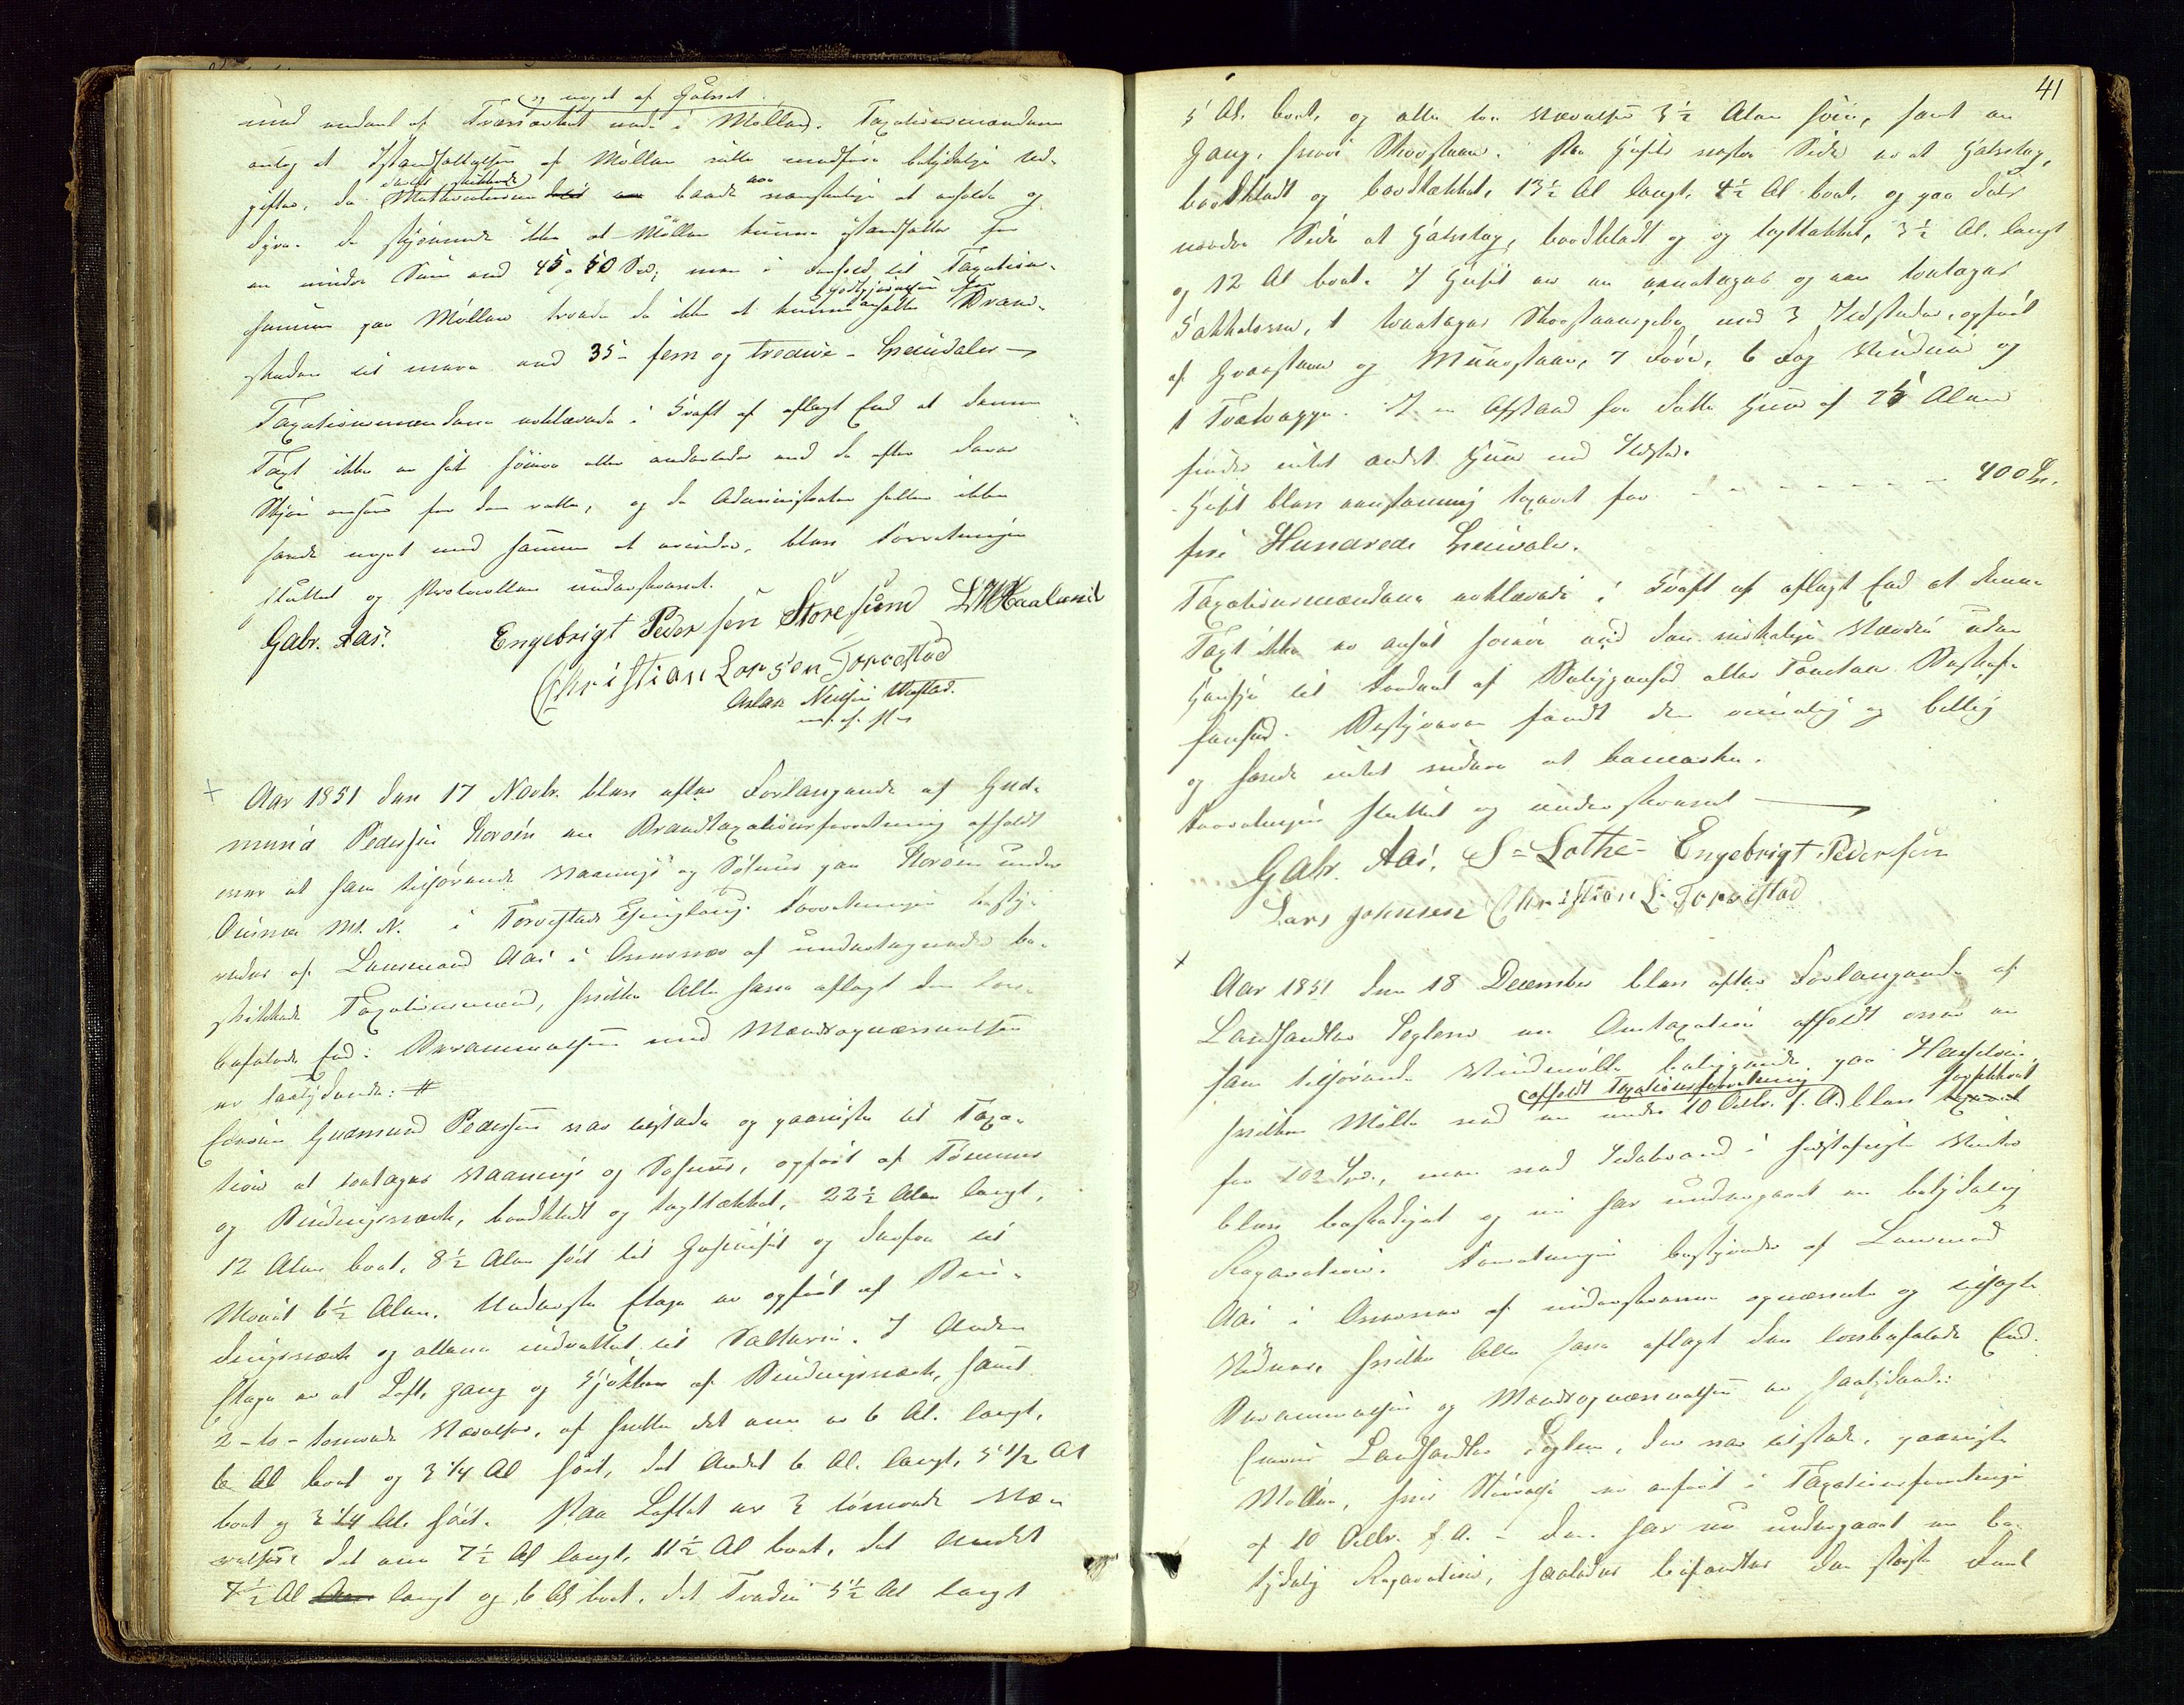 og noget af Hjulet
med undtag af Træværket nede i Møllen. Taxationsmændene
antog at Istandsættelsen af Møllen vilde medføre betydelige Ud-
gifter, da Materialerne dertil skikkede baade ere vanskelige at erholde og
dyre. De skjønnede ikke at Møllen kunne istandsættes for
en mindre Sum end 45 a 50 Spd, men i Forhold til Taxations-
summen paa Møllen troede de ikke at kunne ansætte Godtgjørelsen for Brand-
skaden til mere end 35 - fem og tredive - Speciedaler
Taxationsmændene erklærede i Kraft af aflagt Eed at denne
Taxt ikke er sat høiere eller anderledes end de efter deres
Skjøn ansee for den rette, og da Administrator heller ikke
havde noget mod samme at erindre, blev Forretningen
sluttet og Protocollen underskrevet.
Gabr. Aas. Engebrigt Pedersen Storesund L W Haaland
Christian Larsen Torvestad
Aslak Nielsen Utstad.
m. f. P.
+ Aar 1851 den 17 Novbr. blev efter Forlangende af Gud-
mund Pedersen Koroen en Brandtaxationsforretning afholdt
over et ham tilhørende Vaanings og Søhuus paa Koroen under
M. N. i Torvestads Thinglaug. Forretningen besty-
redes af Lensmand Aas i Overvær af undertegnede be-
skikkede Taxationsmænd, hvilke Alle have aflagt den lov-
befalede Eed. Berammelsen med Mændsopnævnelsen
er saalydende: #
Eieren Gudmund Pedersen var tilstede og paaviste til Taxa-
tion et toetages Vaanings og Søhuus, opført af Tømmer
og Bindingsværk, bordklædt og tagtækket, 22½ Alen langt,
12 Alen bredt, 8½ Alen høit til Gesimset og derfra til
Mønet 6½ Alen. Underste Etage er opført af Bin-
dingsværk og allene indrettet til Salteri. I Anden
Etage er et Loft, Gang og Kjøkken af Bindingsværk, samt
2 - to - tømrede Værelser, af hvilke det ene er 6 Al. langt,
6 Al bredt og 3 1/4 Al høit, det Andet 6 Al. langt, 5 1/2 Al
bredt og 3 1/4 Al. høit. Paa Loftet er 3 tømrede Væ-
relser: det ene 7½ Al langt, 11½ Al bredt, det Andet
7½ Al langt og 6 Al bredt, det Tredie 5½ Al langt
41
5 Al. bredt, og alle tre Værelser 3½ Alen høie, samt en
Gang, hvori Skorsteen. Paa Husets vestre Side er et Halvtag,
bordklædt og bordtækket, 13½ Al langt, 4½ Al bredt, og paa dets
nordre Side et Halvtag, bordklædt og og tagtækket, 3½ Al. langt
og 12 Al bredt. I Huset er en eenetages og een toetages
Kakkelovn, 1 toeetages Skorsteenspibe med 3 Ildsteder, opført
af Graasteen og Muursteen, 7 Døre, 6 Fag Vinduer og
1 Trætrappe. I en Afstand fra dette Huus af 25 Alen
findes intet andet Huus med Ildsted.
Huset blev eenstemmig taxeret for - - - - - - - 400 Spd.
fire Hundrede Speciedaler.
Taxationsmændene erklærede i Kraft af aflagt Eed at denne
Taxt ikke er ansat høiere end den virkelige Værdie uden
Hensyn til Fordeel af Beliggenhed eller Tomtens Beskaf-
fenhed. Bestyreren fandt den rimelig og billig
og havde intet videre at bemærke.
Forretningen sluttet og underskrevet
Gabr. Aas. S= Lothe= Engebrigt Pedersen
Lars Johnsen Christian L. Torvestad
+ Aar 1851 den 18 December blev efter Forlangende af
Landhandler en Omtaxation afholdt over en
ham tilhørende Vindmølle beliggende paa
hvilken Mølle ved en under 10 Octbr. f. A. afholdt Taxationsforretning blev forsikkret
for 102 Spd., men ved Ildebrand i sidstafvigte Vinter
blev beskadiget og nu har undergaaet en betydelig
Reparation. Forretningen bestyredes af Lensmand
Aas i Overvær af underskrevne opnævnte og tilsagte
Vidner, hvilke Alle have aflagt den lovbefalede Eed.
Berammelsen og Mændsopnævnelsen er saalydende:
Eieren Landhandler, der var tilstede, paaviste
Møllen, hvis Størrelse er anført i Taxationsforretningen
af 10 Octbr. f. A. - Den har nu undergaaet en be-
tydelig Reparation, saaledes befandtes den største Deel